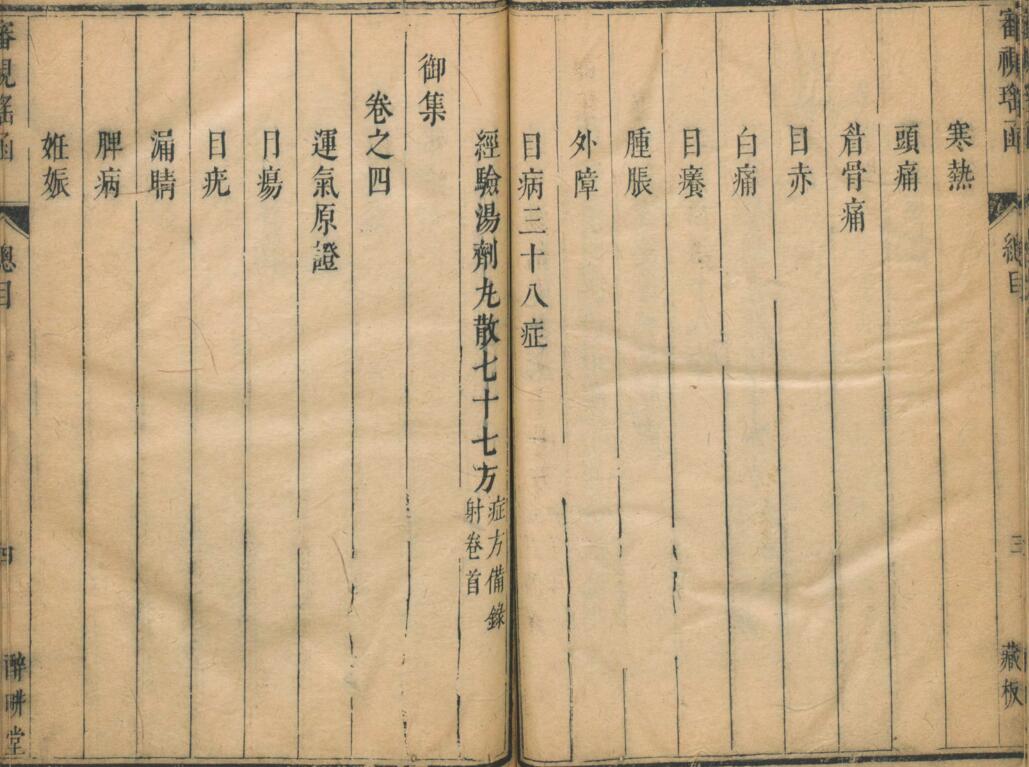 審視瑤函 總目 三 藏板
寒熱
頭痛
眉骨痛
目赤
白痛
目癢
腫脹
外障
目病三十八症
經驗湯劑丸散七十七方
症方備錄
射卷首
御集
卷之四
運氣原證
目瘍
目疣
漏睛
脾病
妊娠
審視瑤函 總目 四 醉畊堂